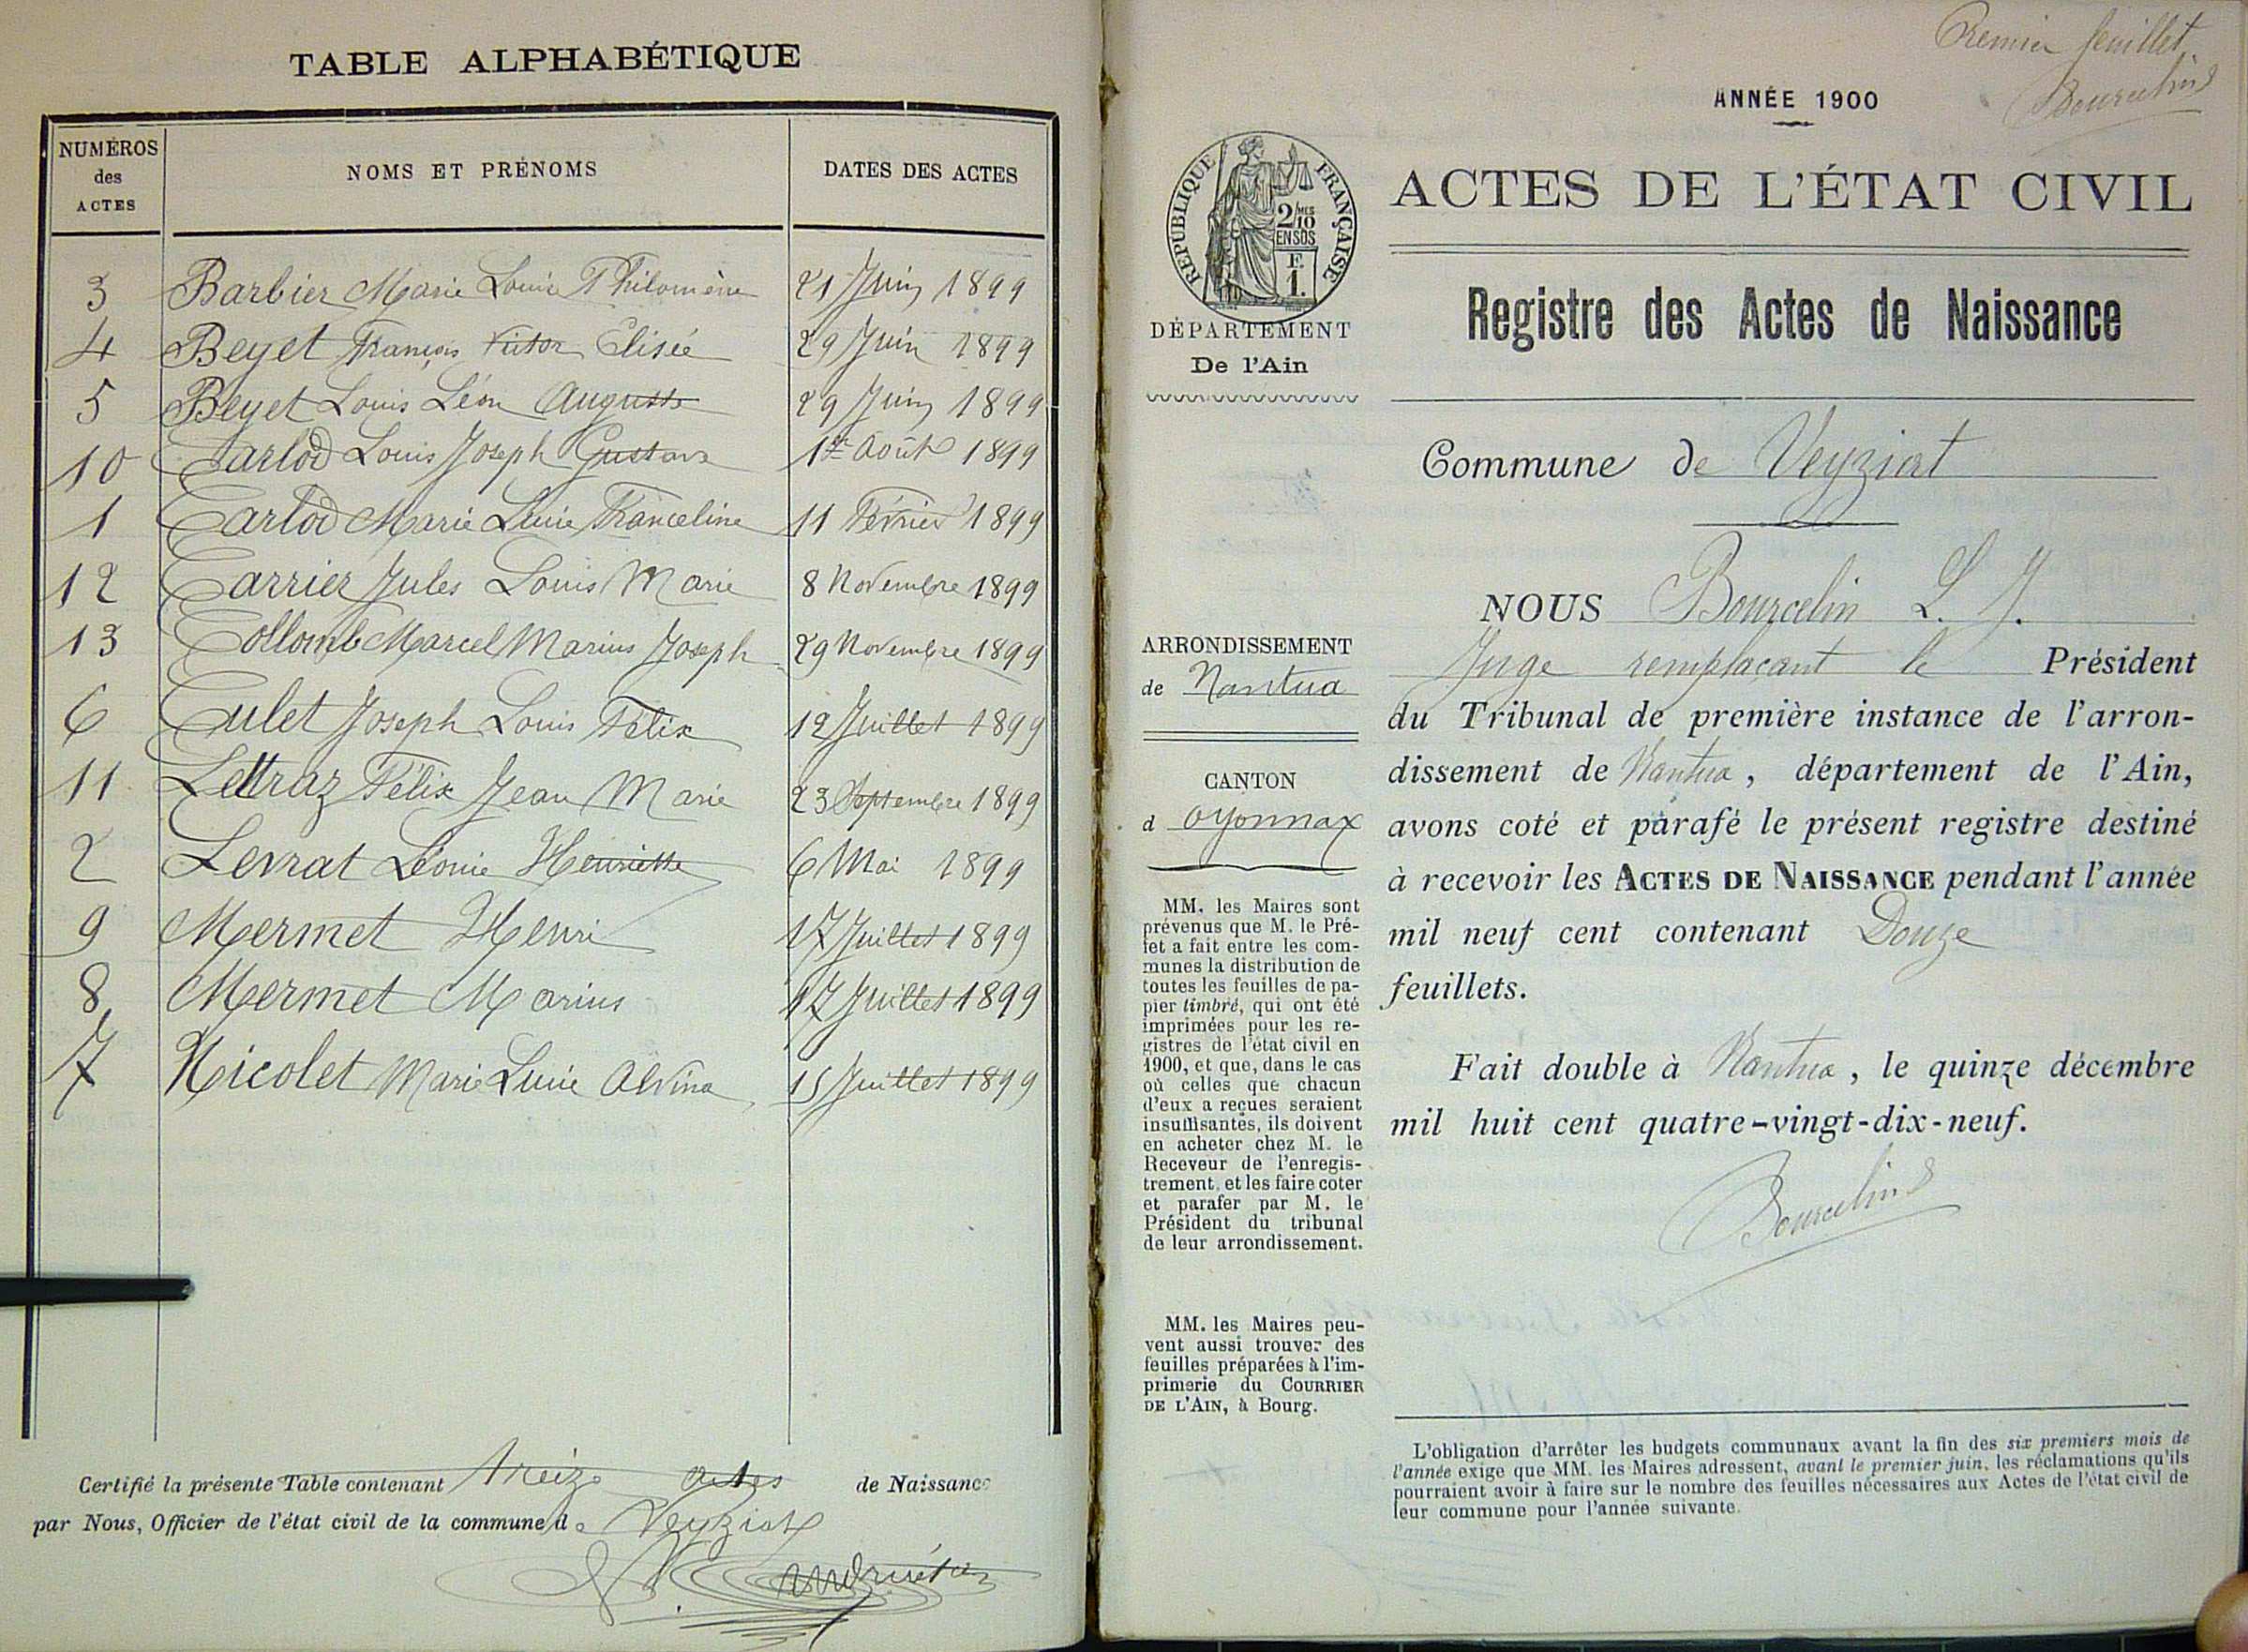 TABLE ALPHABÉTIQUE
NUMÉROS des ACTES
NOMS ET PRÉNOMS
DATES DES ACTES
3 Barbier Marie Louise Philomène 21 Juin 1899
4 Beyet François Victor Elisée 29 Juin 1899
5 Beyet Louis Léon Auguste 29 Juin 1899
10 Carlod Louis Joseph Gustave 1er Août 1899
1 Carlod Marie Lucie Franceline 11 Février 1899
12 Carrier Jules Louis Marie 8 Novembre 1899
13 Collomb Marcel Marius Joseph 29 Novembre 1899
6 Culet Joseph Louis Félix 12 Juillet 1899
11 Lettraz Félix Jean Marie 23 Septembre 1899
2 Levrat Léonie Henriette 6 Mai 1899
9 Mermet Henri 17 Juillet 1899
8 Mermet Marius 17 Juillet 1899
7 Nicolet Marie Lucie Alvina 15 Juillet 1899
Certifié la présente Table contenant treize actes de Naissance
par Nous, Officier de l'état civil de la commune de Veyziat
Premier feuillet
Bourcelin
ANNÉE 1900
RÉPUBLIQUE FRANÇAISE
2/10 MES
EN SUS
F.
1.
DÉPARTEMENT
De l'Ain
ACTES DE L'ÉTAT CIVIL
Registre des Actes de Naissance
Commune de Veyziat
NOUS Bourcelin L. J.
Juge remplaçant le Président
du Tribunal de première instance de l'arron-
dissement de Nantua, département de l'Ain,
avons coté et parafé le présent registre destiné
à recevoir les ACTES DE NAISSANCE pendant l'année
mil neuf cent contenant Douze
feuillets.
Fait double à Nantua, le quinze décembre
mil huit cent quatre-vingt-dix-neuf.
Bourcelin
ARRONDISSEMENT
de Nantua
CANTON
d Oyonnax
MM. les Maires sont
prévenus que M. le Pré-
fet a fait entre les com-
munes la distribution de
toutes les feuilles de pa-
pier timbré, qui ont été
imprimées pour les re-
gistres de l'état civil en
1900, et que, dans le cas
où celles que chacun
d'eux a reçues seraient
insuffisantes, ils doivent
en acheter chez M. le
Receveur de l'enregis-
trement, et les faire coter
et parafer par M. le
Président du tribunal
de leur arrondissement.
MM. les Maires peu-
vent aussi trouver des
feuilles préparées à l'im-
primerie du COURRIER
DE L'AIN, à Bourg.
L'obligation d'arrêter les budgets communaux avant la fin des six premiers mois de
l'année exige que MM. les Maires adressent, avant le premier juin, les réclamations qu'ils
pourraient avoir à faire sur le nombre des feuilles nécessaires aux Actes de l'état civil de
leur commune pour l'année suivante.